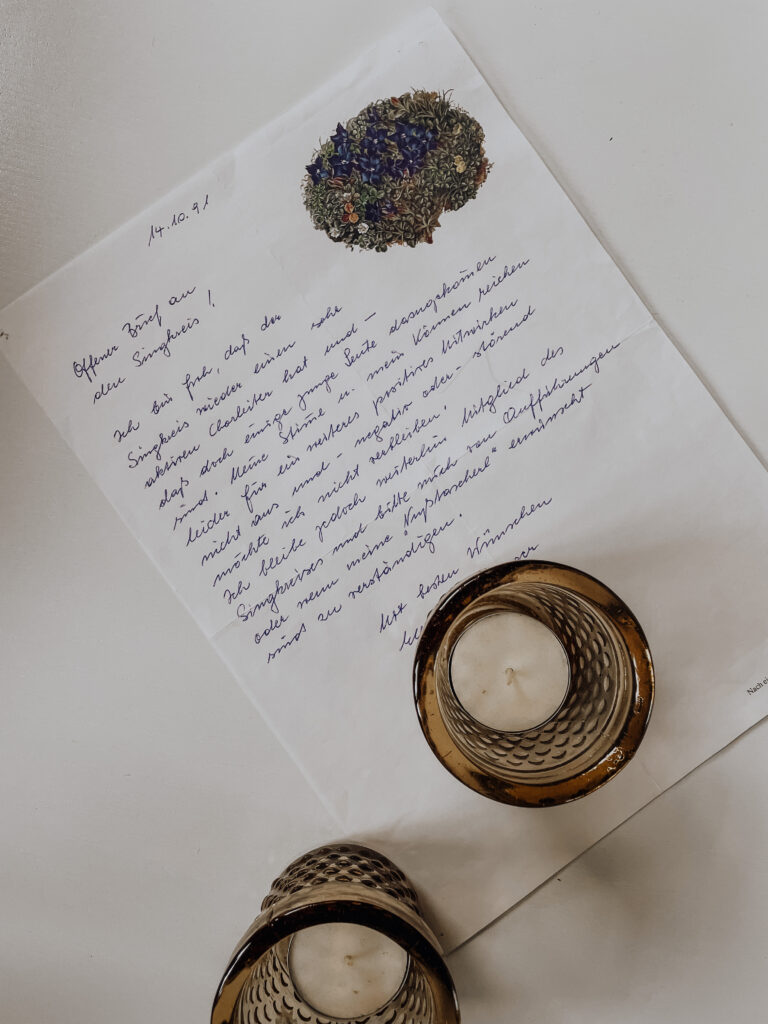 14.10.91
Offener Brief an
den Singkreis!
Ich bin froh, daß der
Singkreis wieder einen sehr
aktiven Chorleiter hat und –
daß doch einige junge Leute dazugekommen
sind. Meine Stimme u. mein Können reichen
leider für ein weiteres positives Mitwirken
nicht aus und – negativ oder – störend
möchte ich nicht verbleiben.
Ich bleibe jedoch weiterhin Mitglied des
Singkreises und bitte mich von Aufführungen
oder wenn meine "Nußtascherl" erwünscht
sind zu verständigen.
Mit besten Wünschen
Nach ei